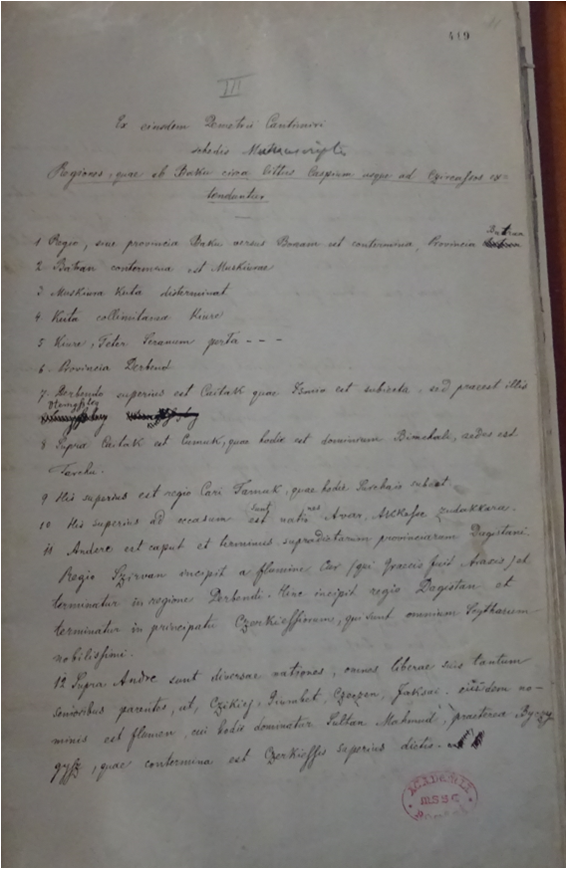 419
III
Ex eiusdem Demetrii Cantimiri
schedis Manuscriptis
Regiones, quae ob Baku circa littus Caspium usque ad Czircassos ex-
tenduntur
1 Regio, sive provincia Baku versus Boream est contermina, Provincia Batran
2 Batran contermina est Muskiurae
3 Muskiura Kuta disterminat
4 Kuta collimitatur Kiure
5 Kiure, Feter Seranum porta - - -
6 Provincia Derbend
7 Derbendo superius est Caitak quae Usmio est subiecta, sed praeest illis
8 Supra Caitak est Cumuk, quae hodie est dominium Bimchali, sedes est
Tarchu.
9 His superius est regio Cari Tamuk, quae hodie subest
10 His superius ad occasum sunt nationes Avar,
11 Andere est caput et terminus supradictarum provinciarum Dagistani.
Regio Szirvan incipit a flumine Cur (qui Graecis fuit Araxis) et
terminatur in regione Derbendi. Hinc incipit regio Dagistan et
terminatur in principatu Czerkiessiorum, qui sunt omnium Scytharum
nobilissimi.
12 Supra Andre sunt diversae nationes, omnes liberae suis tantum
senioribus parentes, ut, Czikiej, Giumbet, Czeczen, Jaksai. eiusdem no-
minis est flumen, cui hodie dominatur Sultan Mahmud, praeterea
quae contermina est Czerkessis superius dictis.
ACADEMIA
MSSE
ROMANA